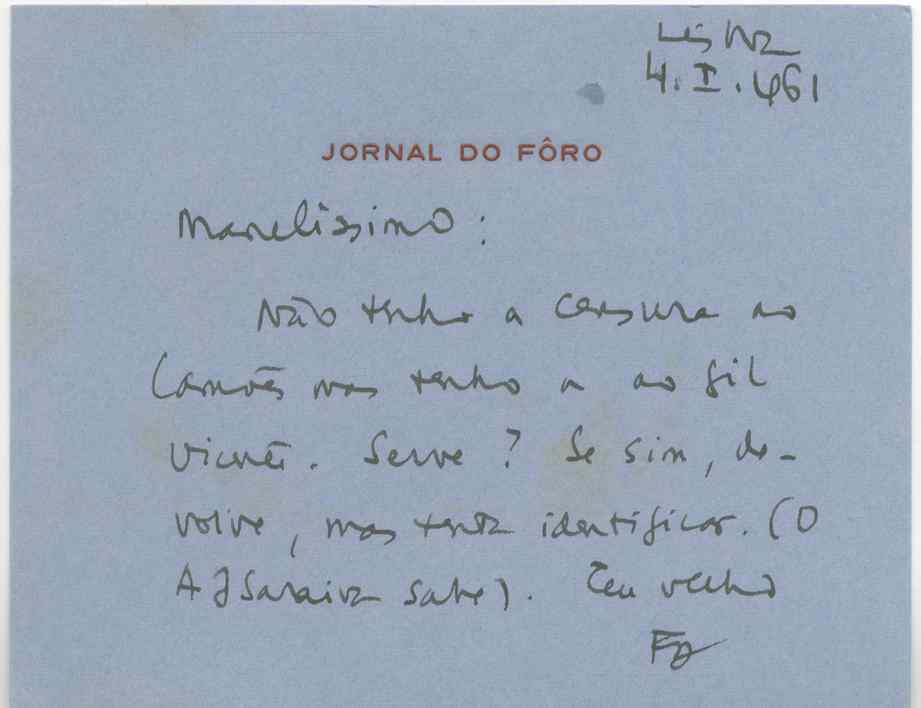 Lisboa
4.I.961
JORNAL DO FÔRO
Manelíssimo:
Não tenho a censura ao
Camões mas tenho a ao Gil
Vicente. Serve? Se sim, de-
volve, mas tenta identificar. (O
AJSaraiva sabe). Teu velho